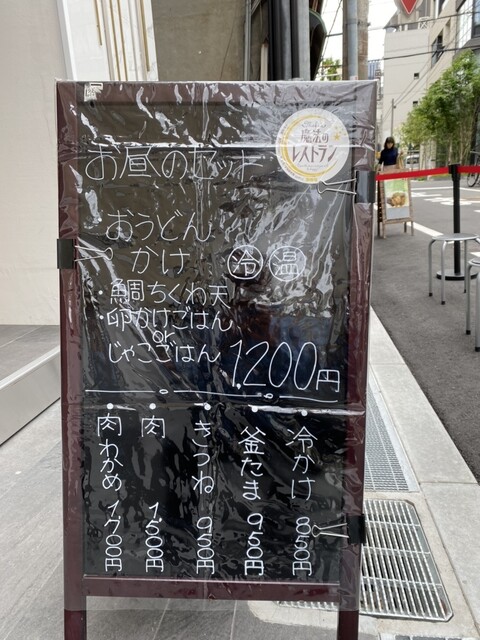 魔法の
レストラン
お昼のセット
おうどん
かけ 冷 温
・鯛ちくわ天
・卵かけごはん
or
じゃこごはん 1,200円
・冷かけ 850円
・釜たま 950円
・きつね 950円
・肉 1,500円
・肉わかめ 1,700円